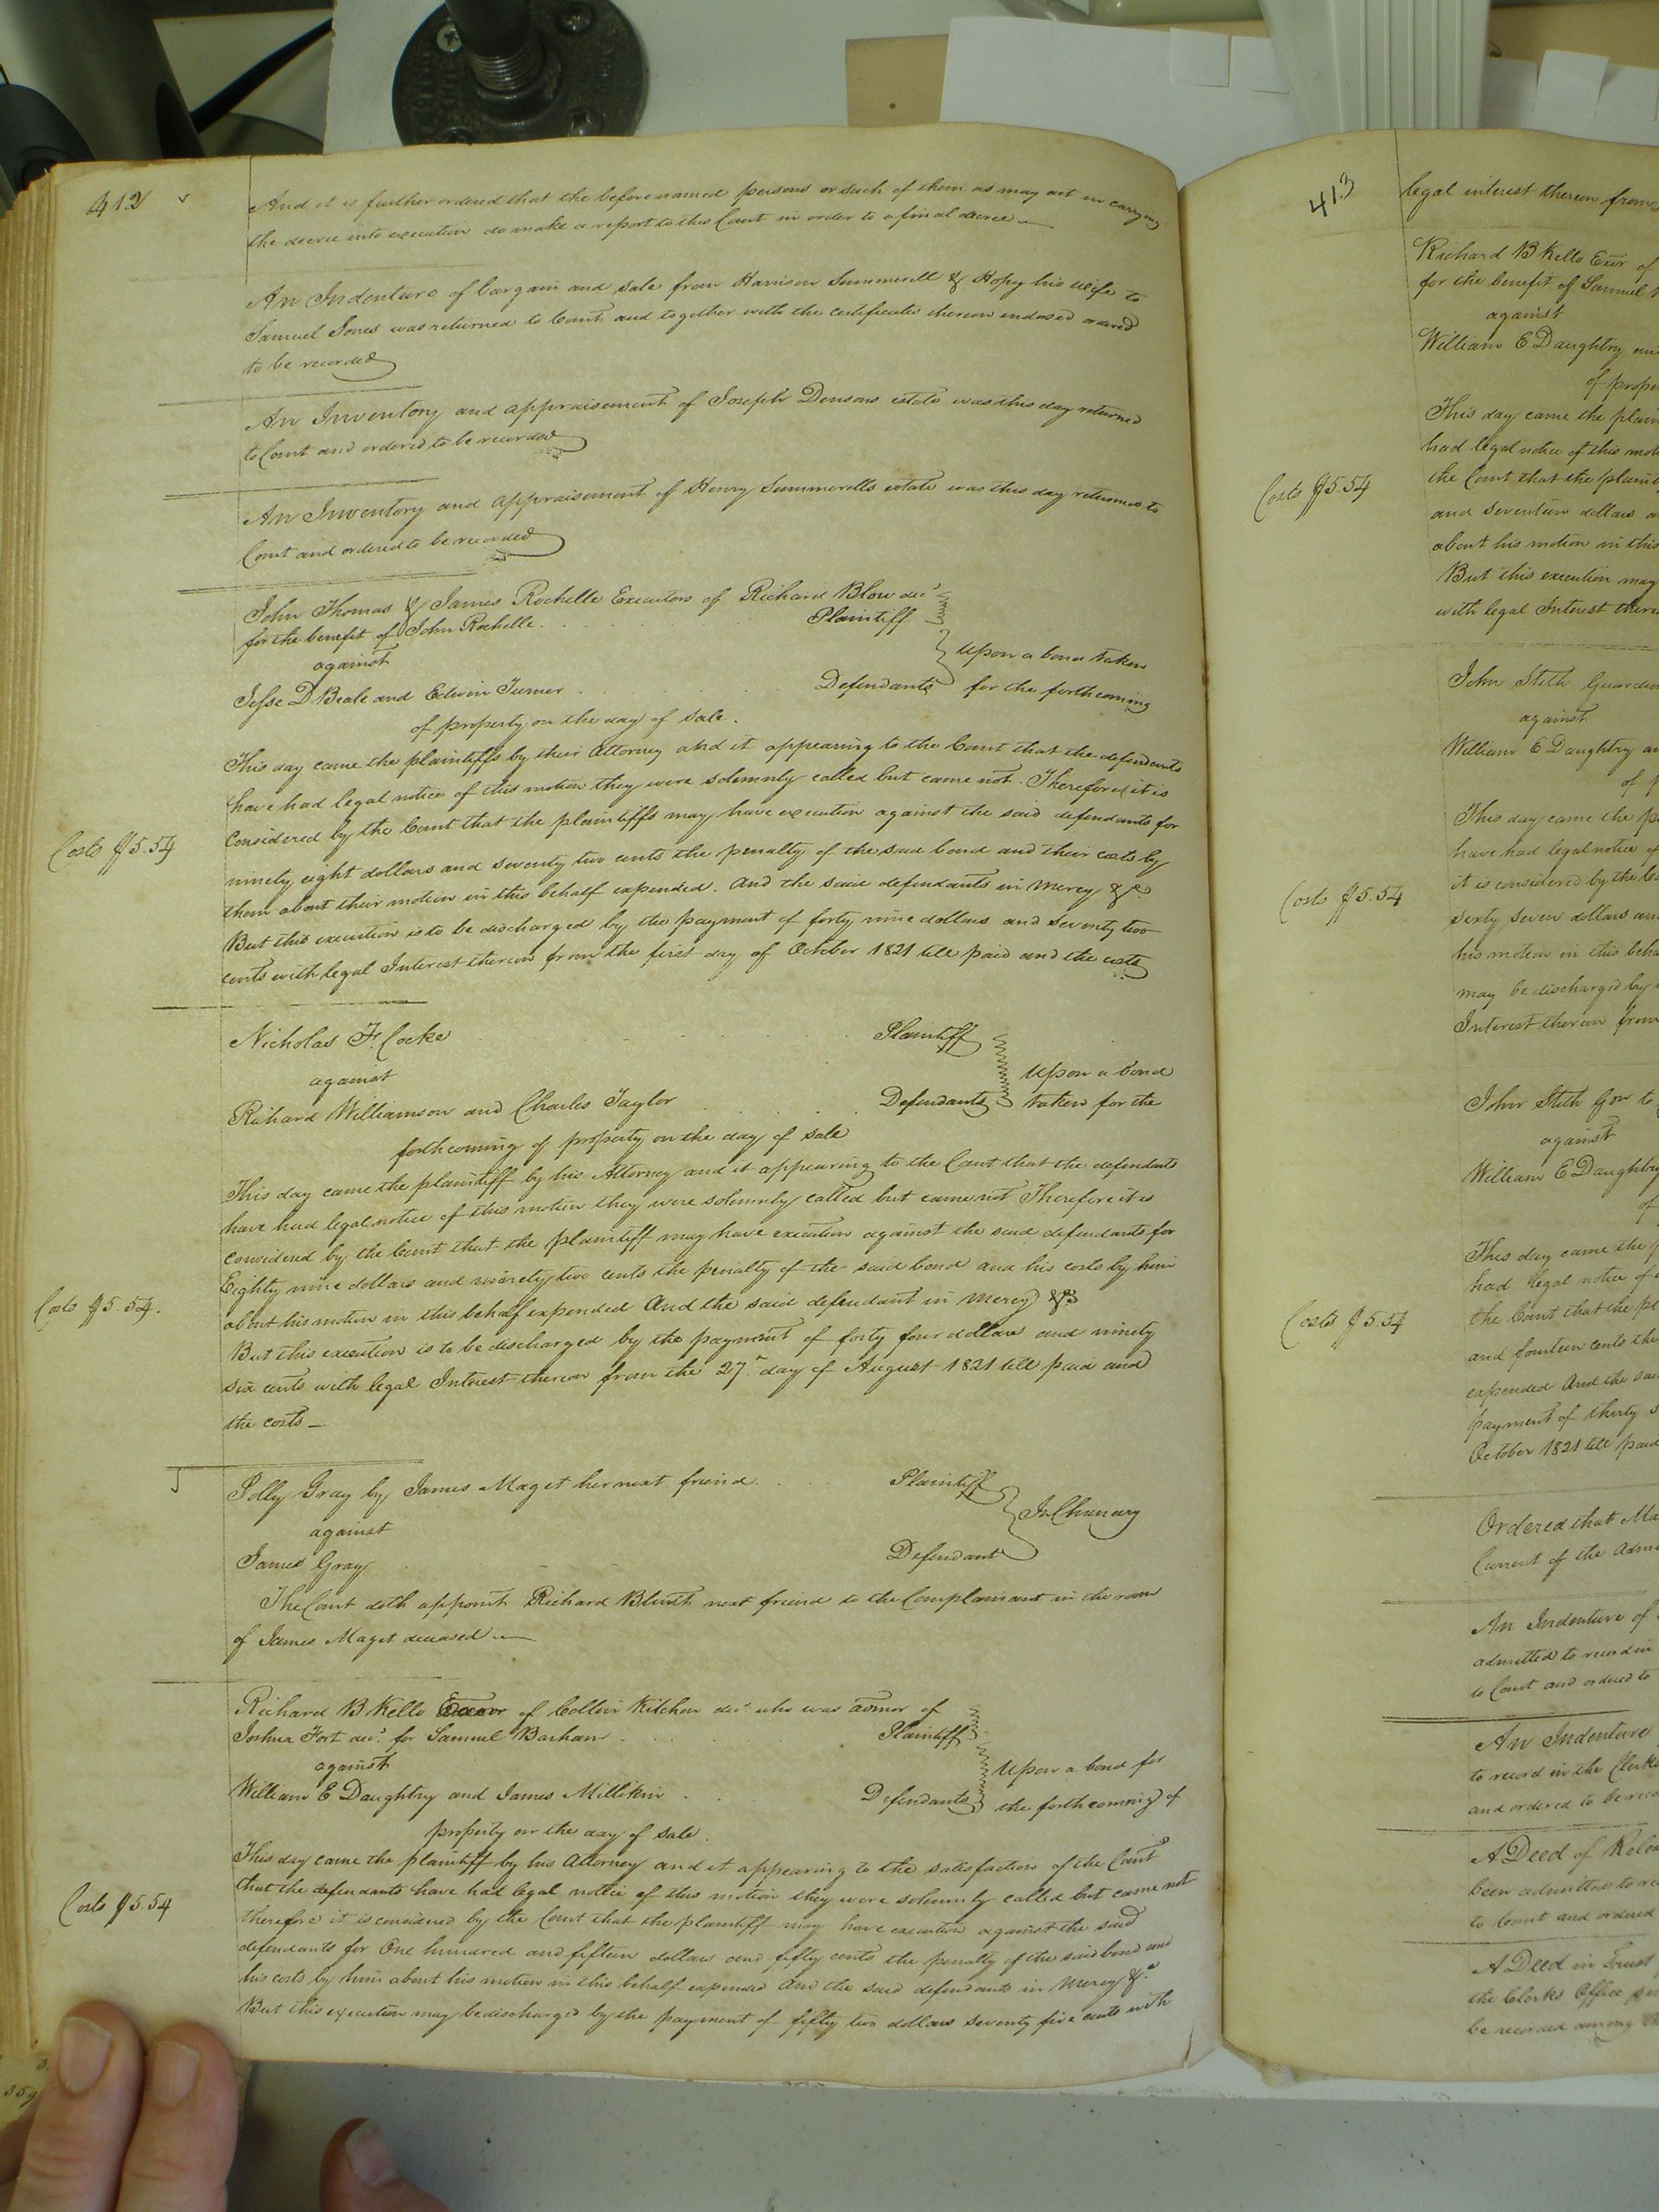 412
And it is further ordered that the before named persons or such of them as may act in carrying
the decree into execution do make a report to this Court in order to a final decree
An Indenture of bargain and sale from Harrison Summerell & Hopy his wife to
Samuel Jones was returned to Court and together with the certificate thereon endorsed ordered
to be recorded
An Inventory and appraisement of Joseph Densons estate was this day returned
to Court and ordered to be recorded
An Inventory and appraisement of Henry Summerells estate was this day returned to
Court and ordered to be recorded
John Thomas & James Rochelle Executors of Richard Blow decd
for the benefit of John Rochelle Plaintiff
against Upon a bond taken
Jesse D Beale and Edwin Turner Defendants for the forthcoming
of property on the day of sale.
This day came the plaintiffs by their Attorney and it appearing to the Court that the defendants
have had legal notice of this motion they were solemnly called but came not. Therefore it is
Considered by the Court that the plaintiffs may have execution against the said defendants for
Costs $5.54
ninety eight dollars and seventy two cents the penalty of the said bond and their costs by
them about their motion in this behalf expended. And the said defendants in Mercy &c.
But this execution is to be discharged by the payment of forty nine dollars and seventy two
cents with legal Interest thereon from the first day of October 1821 till paid and the costs
Nicholas F. Cocke Plaintiff
against Upon a bond
Richard Williamson and Charles Taylor Defendants taken for the
forthcoming of property on the day of sale
This day came the plaintiff by his Attorney and it appearing to the Court that the defendants
have had legal notice of this motion they were solemnly called but came not Therefore it is
considered by the Court that the plaintiff may have execution against the said defendants for
Eighty nine dollars and ninety two cents the penalty of the said bond and his costs by him
Costs $5.54.
about his motion in this behalf expended And the said defendant in Mercy &c
But this execution is to be discharged by the payment of forty four dollars and ninety
six cents with legal Interest thereon from the 27th day of August 1821 till paid and
the costs
Polly Gray by James Maget her next friend Plaintiff
against In Chancery
James Gray Defendant
The Court doth appoint Richard Blunt next friend to the Complainant in the room
of James Maget deceased
Richard B Kello of Collin Kitchen decd who was admor of
Joshua Fort decd for Samuel Barham Plaintiff
against Upon a bond for
William E Daughtry and James Millikin Defendants the forthcoming of
property on the day of sale.
This day came the plaintiff by his Attorney and it appearing to the satisfaction of the Court
that the defendants have had legal notice of this motion they were solemnly called but came not
Costs $5.54
therefore it is considered by the Court that the plaintiff may have execution against the said
defendants for One hundred and fifteen dollars and fifty cents the penalty of the said bond and
his costs by him about his motion in this behalf expended And the said defendants in Mercy &c
But this execution may be discharged by the payment of fifty two dollars seventy five cents with
413
legal interest thereon from
Richard B Kello Exor of
for the benefit of Samuel
against
William E Daughtry
of
This day came the
had legal notice of this
the Court that the
Costs $5.54
and seventeen dollars
about his motion in this
But this execution may
with legal Interest
John Stith Guardian
against
William E Daughtry
of
This day came the
have had legal notice of
it is considered by the
Costs $5.54
Sixty Seven dollars
his motion in this
may be discharged by
Interest thereon from
John Stith to
against
William E Daughtry
of
This day came the
had legal notice of
the Court that the
Costs $5.54
and fourteen cents the
expended And the
payment of thirty
October 1821 till paid
Ordered that
Current of the
An Indenture of
admitted to record in
to Court and ordered to
An Indenture
to record in the
and ordered to be
A Deed of
been admitted to
to Court and ordered
A Deed in Trust
the Clerks Office
be recorded among